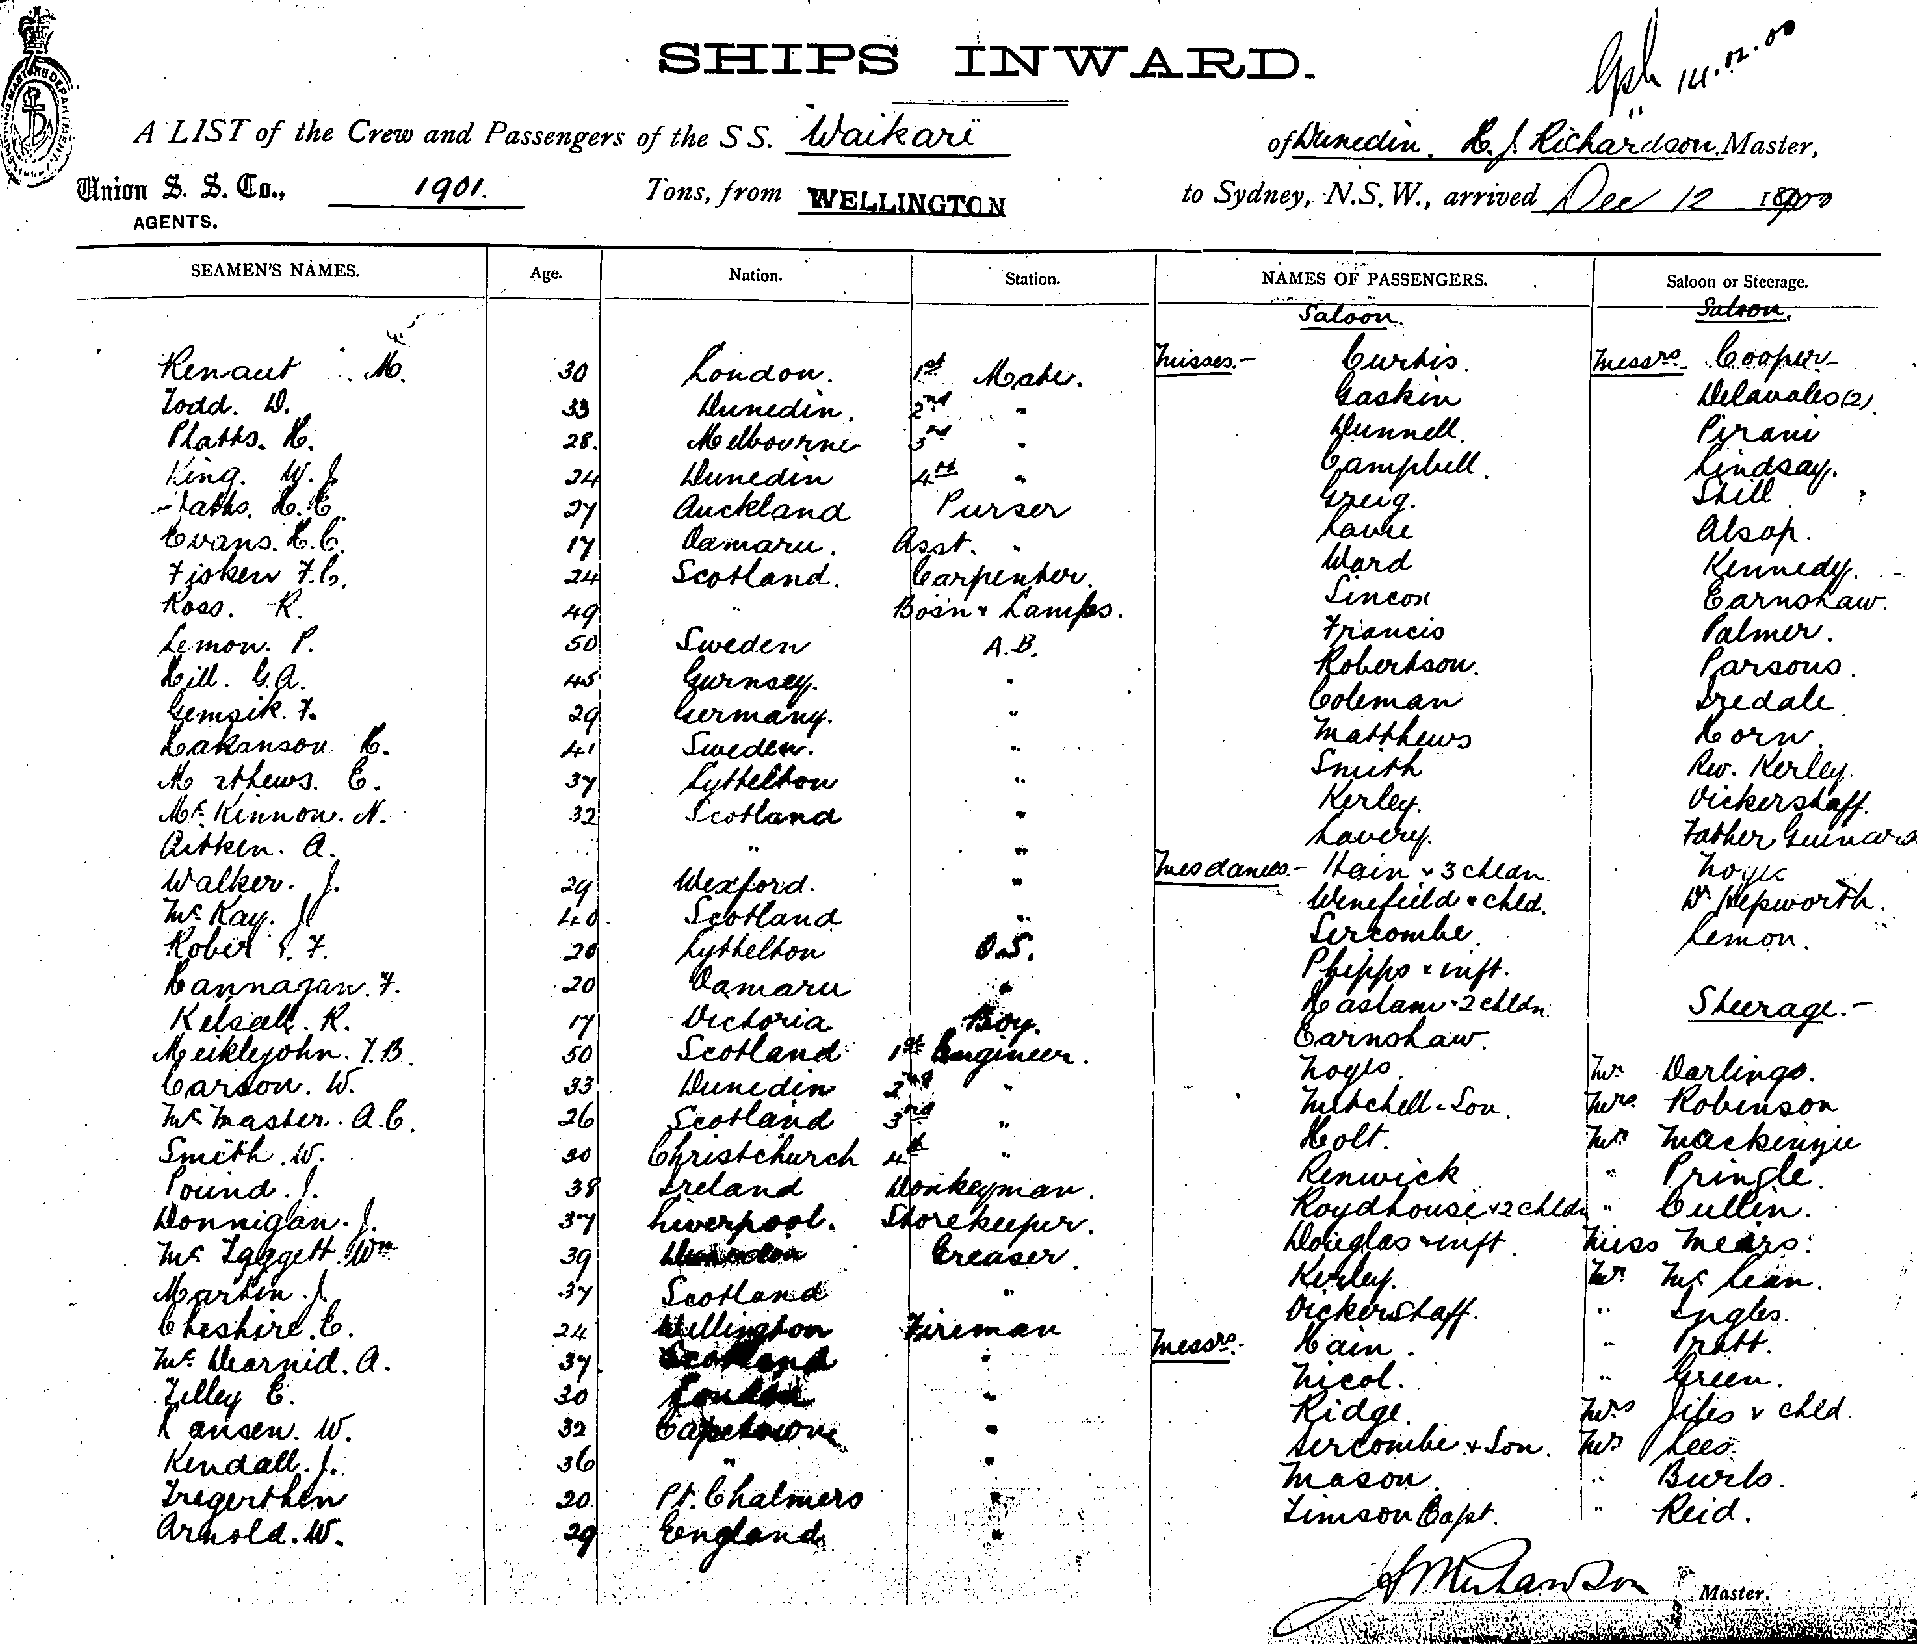 SHIPS INWARD.
14.12.00
A LIST of the Crew and Passengers of the S S. Waikari of Dunedin. H. J. Richardson, Master,
Union S. S. Co., 1901. Tons, from WELLINGTON to Sydney, N.S.W., arrived Dec 12 1900
AGENTS.
SEAMEN'S NAMES. Age. Nation. Station. NAMES OF PASSENGERS. Saloon or Steerage.
Saloon. Saloon.
Renaut M. 30 London. 1st Mate. Misses.- Curtis. Messrs. Cooper
Todd. D. 33 Dunedin. 2nd " Gaskin Delavales (2).
Platts. H. 28. Melbourne 3rd " Dunnell. Pirani
King. W. J. 24 Dunedin 4th " Campbell. Lindsay.
H. C. 27 Auckland Purser Greig. Still
Evans. H. C. 17 Oamaru. Asst. " Laurie Alsop.
Fisken F. C. 24 Scotland. Carpenter. Ward Kennedy.
Ross. R. 49 " Bosn & Lamps. Sincox Earnshaw.
Lemon. P. 50 Sweden A.B. Francis Palmer.
Hill. G. A. 45 Gurnsey. " Robertson. Parsons.
Gemsik. F. 29 Germany. " Coleman Iredale
Hakanson H. 41 Sweden. " Matthews Horn.
M thews. E. 37 Lyttelton " Smith Rev. Kerley.
McKinnon. N. 32 Scotland " Kerley. Vickerstaff.
Aitken. A. " " Lavery. Father
Walker. J. 29 Wexford. " Mesdames.- Hain & 3 chldn Noyes
McKay. J. 40 Scotland " Winefield & chld. Dr Hepworth.
F. 20 Lyttelton O.S. Sercombe. Lemon.
Hannagan. F. 20 Oamaru " Phipps & inft.
Kelsall. R. 17 Victoria Boy. Haslam & 2 chldn. Steerage.-
Meiklejohn. T. B. 50 Scotland 1st Engineer. Earnshaw.
Carson. W. 33 Dunedin 2nd " Noyes. Mr Darlings.
McMaster. A. C. 26 Scotland 3rd " Mitchell & Son. Mrs Robinson
Smith. W. 30 Christchurch 4th " Holt. Mr Mackenzie
Pound. J. 38 Ireland Donkeyman. Renwick " Pringle.
Donnigan. J. 37 Liverpool. Storekeeper. Roydhouse & 2 chldn " Cullin.
McTaggett. Wm 39 Greaser. Douglas & inft. Miss Mears.
Martin. J. 37 Scotland " Kerley. Mr McLean.
Cheshire. C. 24 Wellington Fireman Vickerstaff. " Ingles.
McDearnid. A. 37 Scotland " Messrs.- Hain. " Pratt.
Tilley E. 30 London " Nicol. " Green.
ansen. W. 32 Capetown " Ridge. Mrs Jiles & chld.
Kendall. J. 36 " " Sercombe & Son. Mr Lees.
Tregerthen 20 Pt. Chalmers " Mason. " Burls.
Arnold. W. 29 England " Timson Capt. " Reid.
H J Richardson Master.